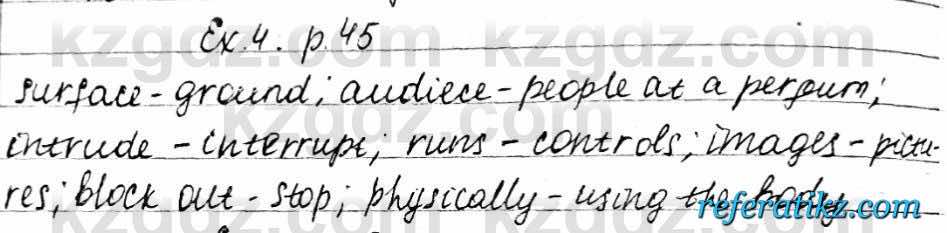 Ex.4. p.45
surface - ground; audiece - people at a perfum;
intrude - interrupt; runs - controls; images - pictu-
res; block out - stop; physically - using the body
kzgdz.com
referatikz.com